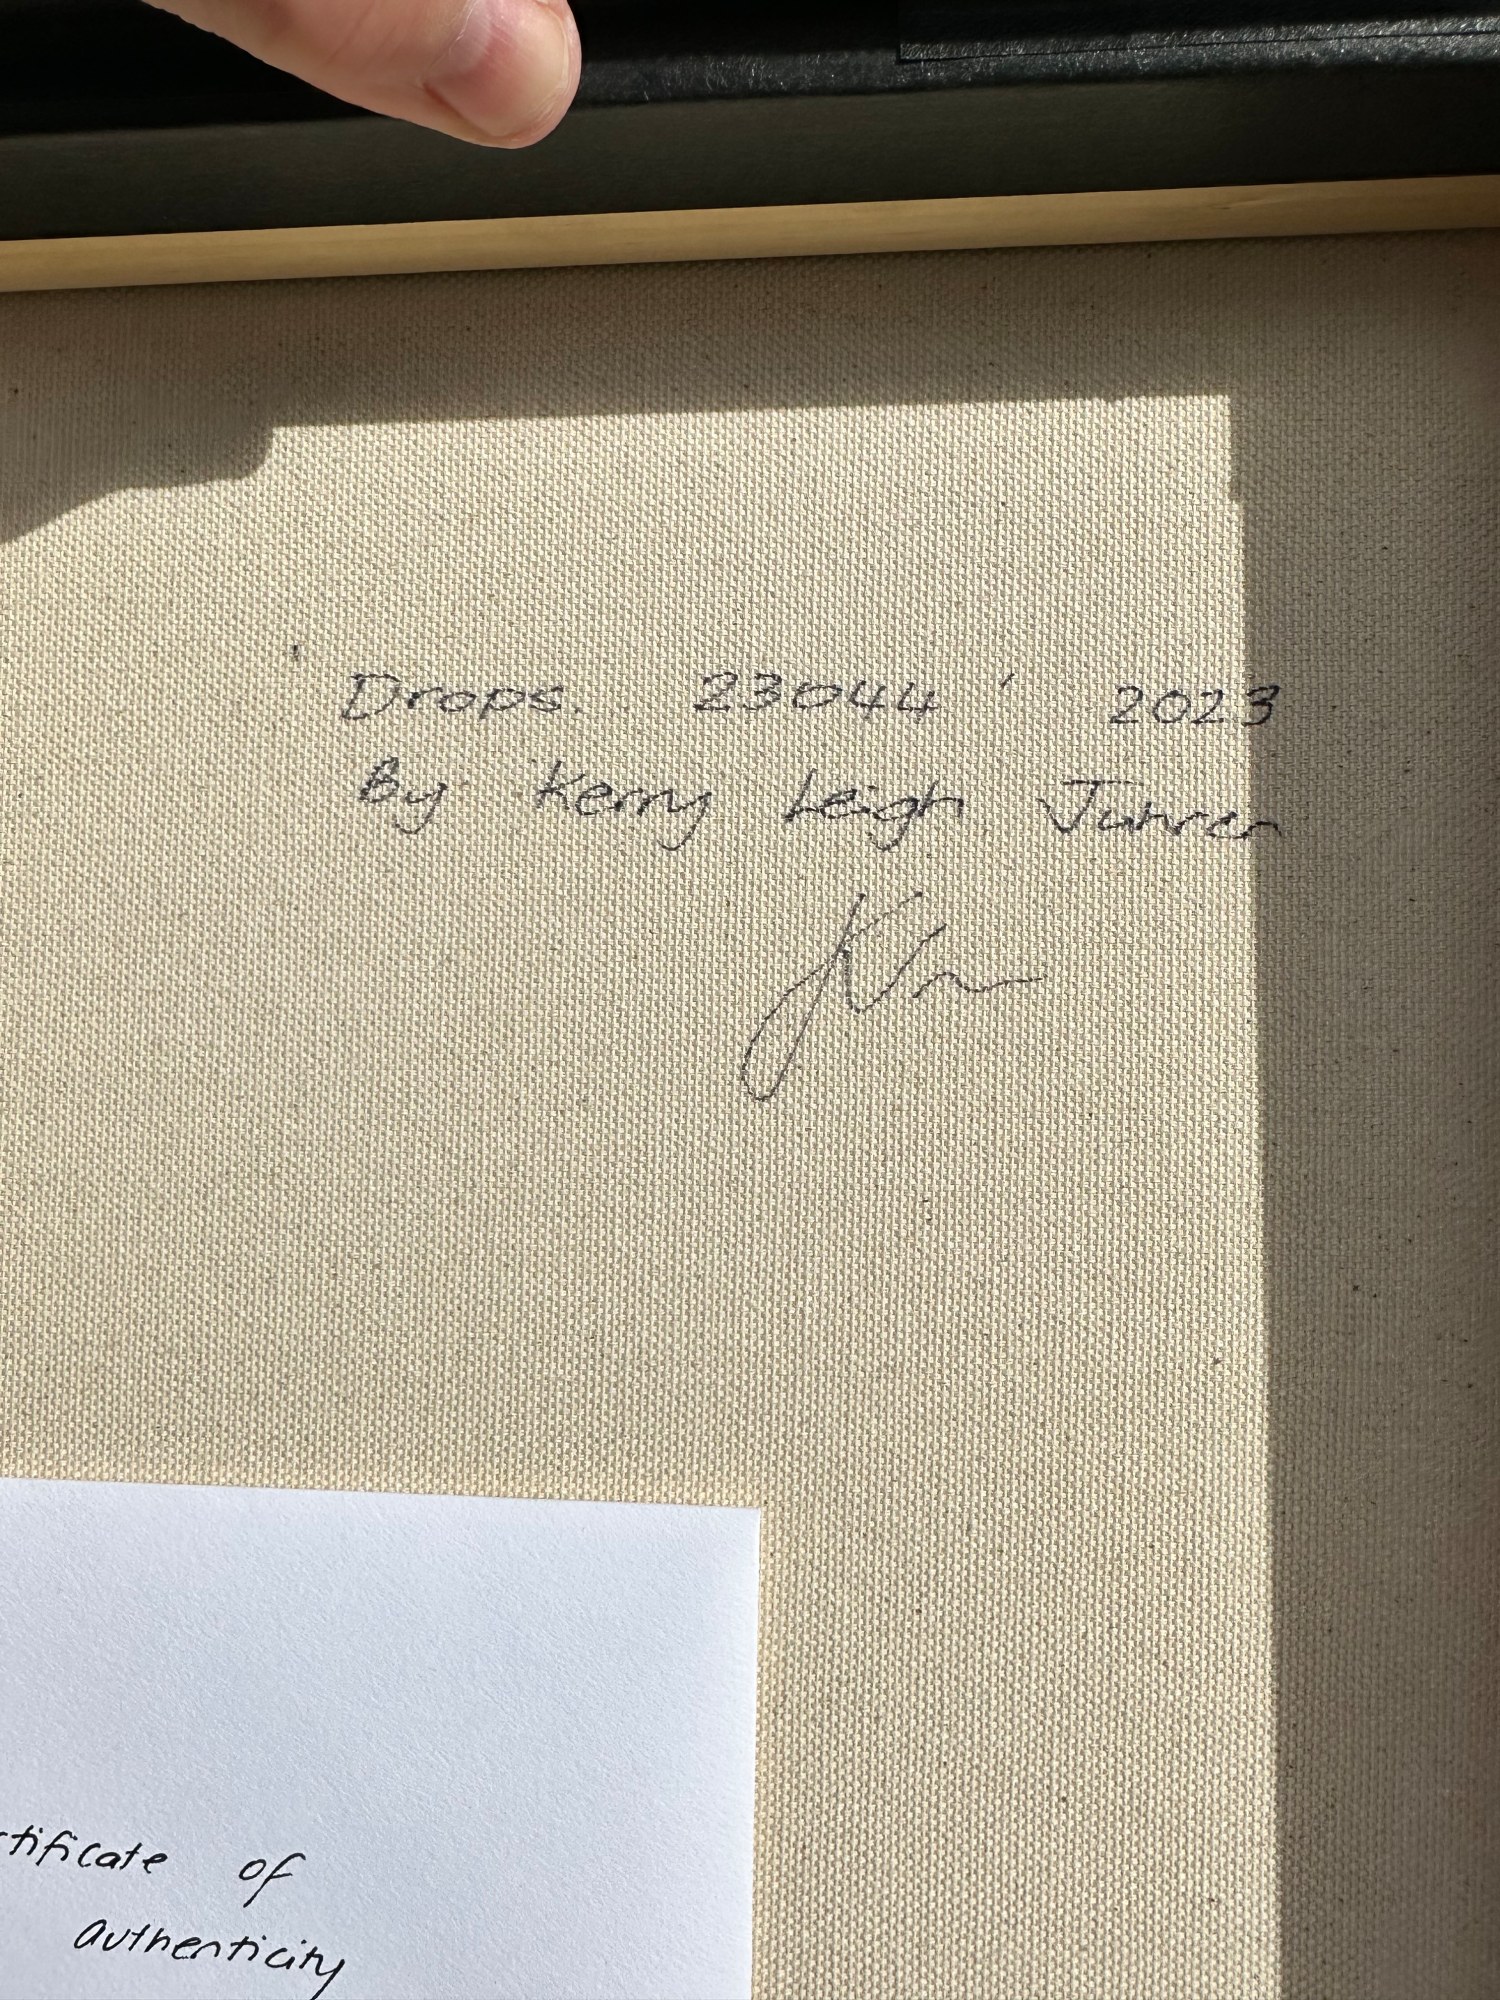 'Drops. 23044' 2023
By Kerry Leigh Juhren
tificate of
authenticity